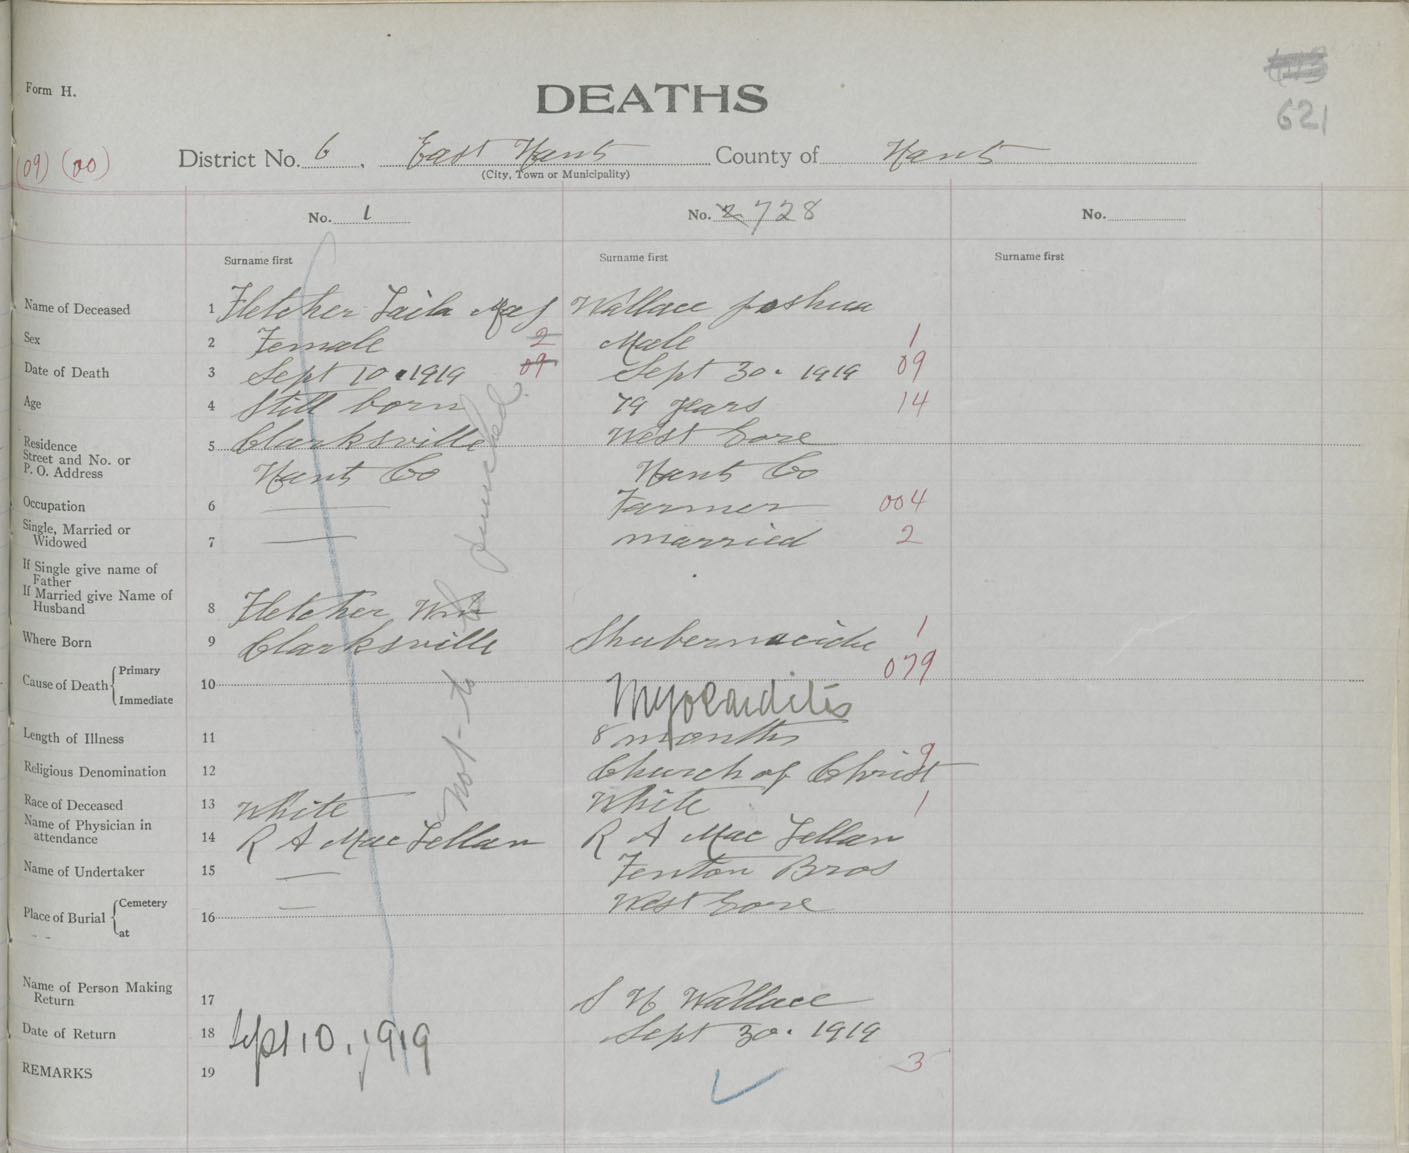 Form H.
DEATHS
621
(09) (00)
District No. 6 . East Hants County of Hants
(City, Town or Municipality)
No. 1 No. 2 728 No.
Surname first Surname first Surname first
Name of Deceased 1 Fletcher Laila May Wallace Joshua
Sex 2 Female 2 Male 1
Date of Death 3 Sept 10 . 1919 09 Sept 30 . 1919 09
Age 4 Still born 79 years 14
Residence 5 Clarksville West Gore
Street and No. or
P. O. Address Hants Co Hants Co
Occupation 6 Farmer 004
Single, Married or
Widowed 7 married 2
If Single give name of
Father
If Married give Name of
Husband 8 Fletcher Wm
Where Born 9 Clarksville Shubernacidie 1
079
Cause of Death { Primary
Immediate 10 Myocarditis
Length of Illness 11 8 months
Religious Denomination 12 Church of Christ 9
Race of Deceased 13 White White 1
Name of Physician in
attendance 14 R A MacLellan R A MacLellan
Name of Undertaker 15 — Fenton Bros
Place of Burial { Cemetery
at 16 — West Gore
not to be punched.
Name of Person Making
Return 17 S H Wallace
Date of Return 18 Sept 10, 1919 Sept 30 . 1919
REMARKS 19 3